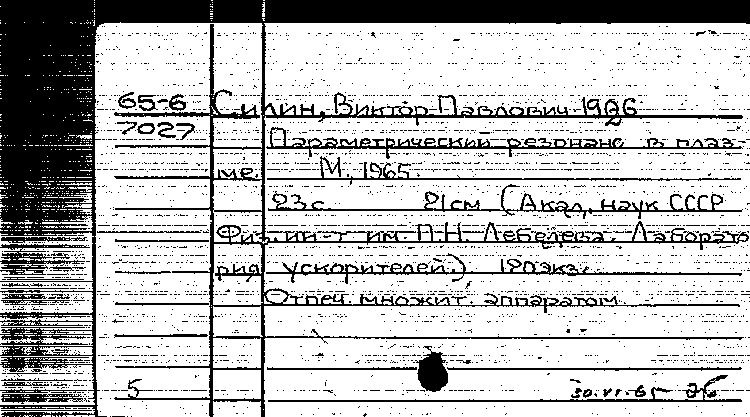 65-6 Силин, Виктор Павлович 1926
7027 Параметрический резонанс в плаз-
ме. М., 1965.
23 с. 21 см (Акад. наук СССР
Физ. ин-т им. П.Н. Лебедева. Лаборато
рия ускорителей.) 120 экз.
Отпеч. множит. аппаратом
5